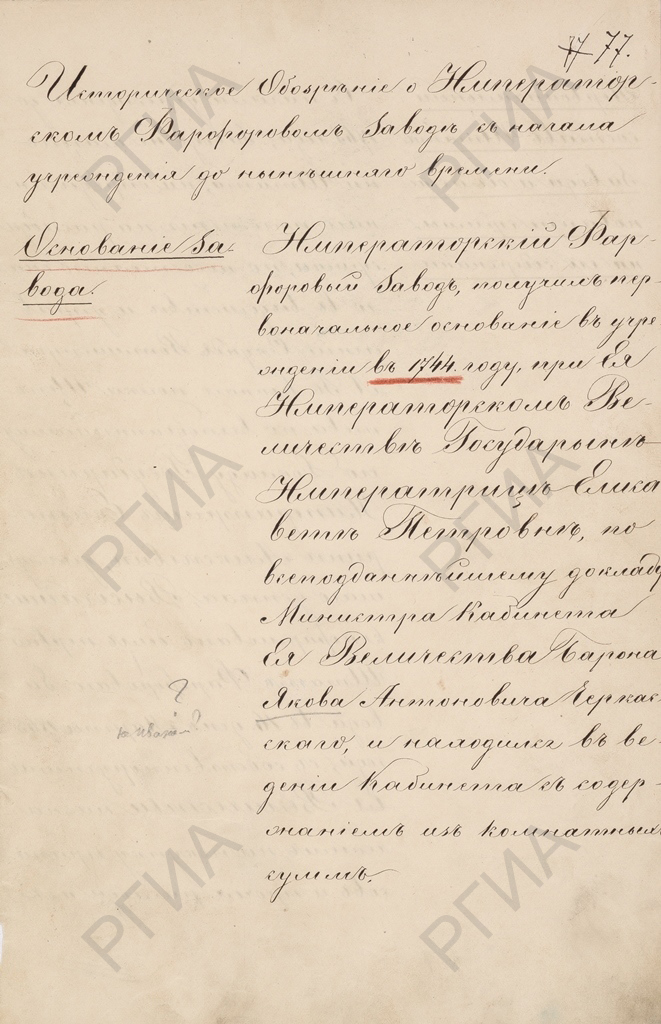 77.
Историческое Обозрѣніе о Император-
скомъ Фарфоровомъ Заводѣ съ начала
учрежденія до нынѣшняго времени.
Основаніе За-
вода.
Императорскій Фар-
форовый Заводъ, получилъ пер-
воначальное основаніе въ учре
жденіи въ 1744. году, при Ея
Императорскомъ Ве-
личествѣ Государынѣ
Императрицѣ Елиса
ветѣ Петровнѣ, по
всеподданнѣйшему докладу
Министра Кабинета
Ея Величества Барона
Якова Антоновича Черкас-
скаго, и находился въ вѣ-
деніи Кабинета съ содер-
жаніемъ изъ комнатныхъ
суммъ.
?
РГИА
РГИА
РГИА
РГИА
РГИА
РГИА